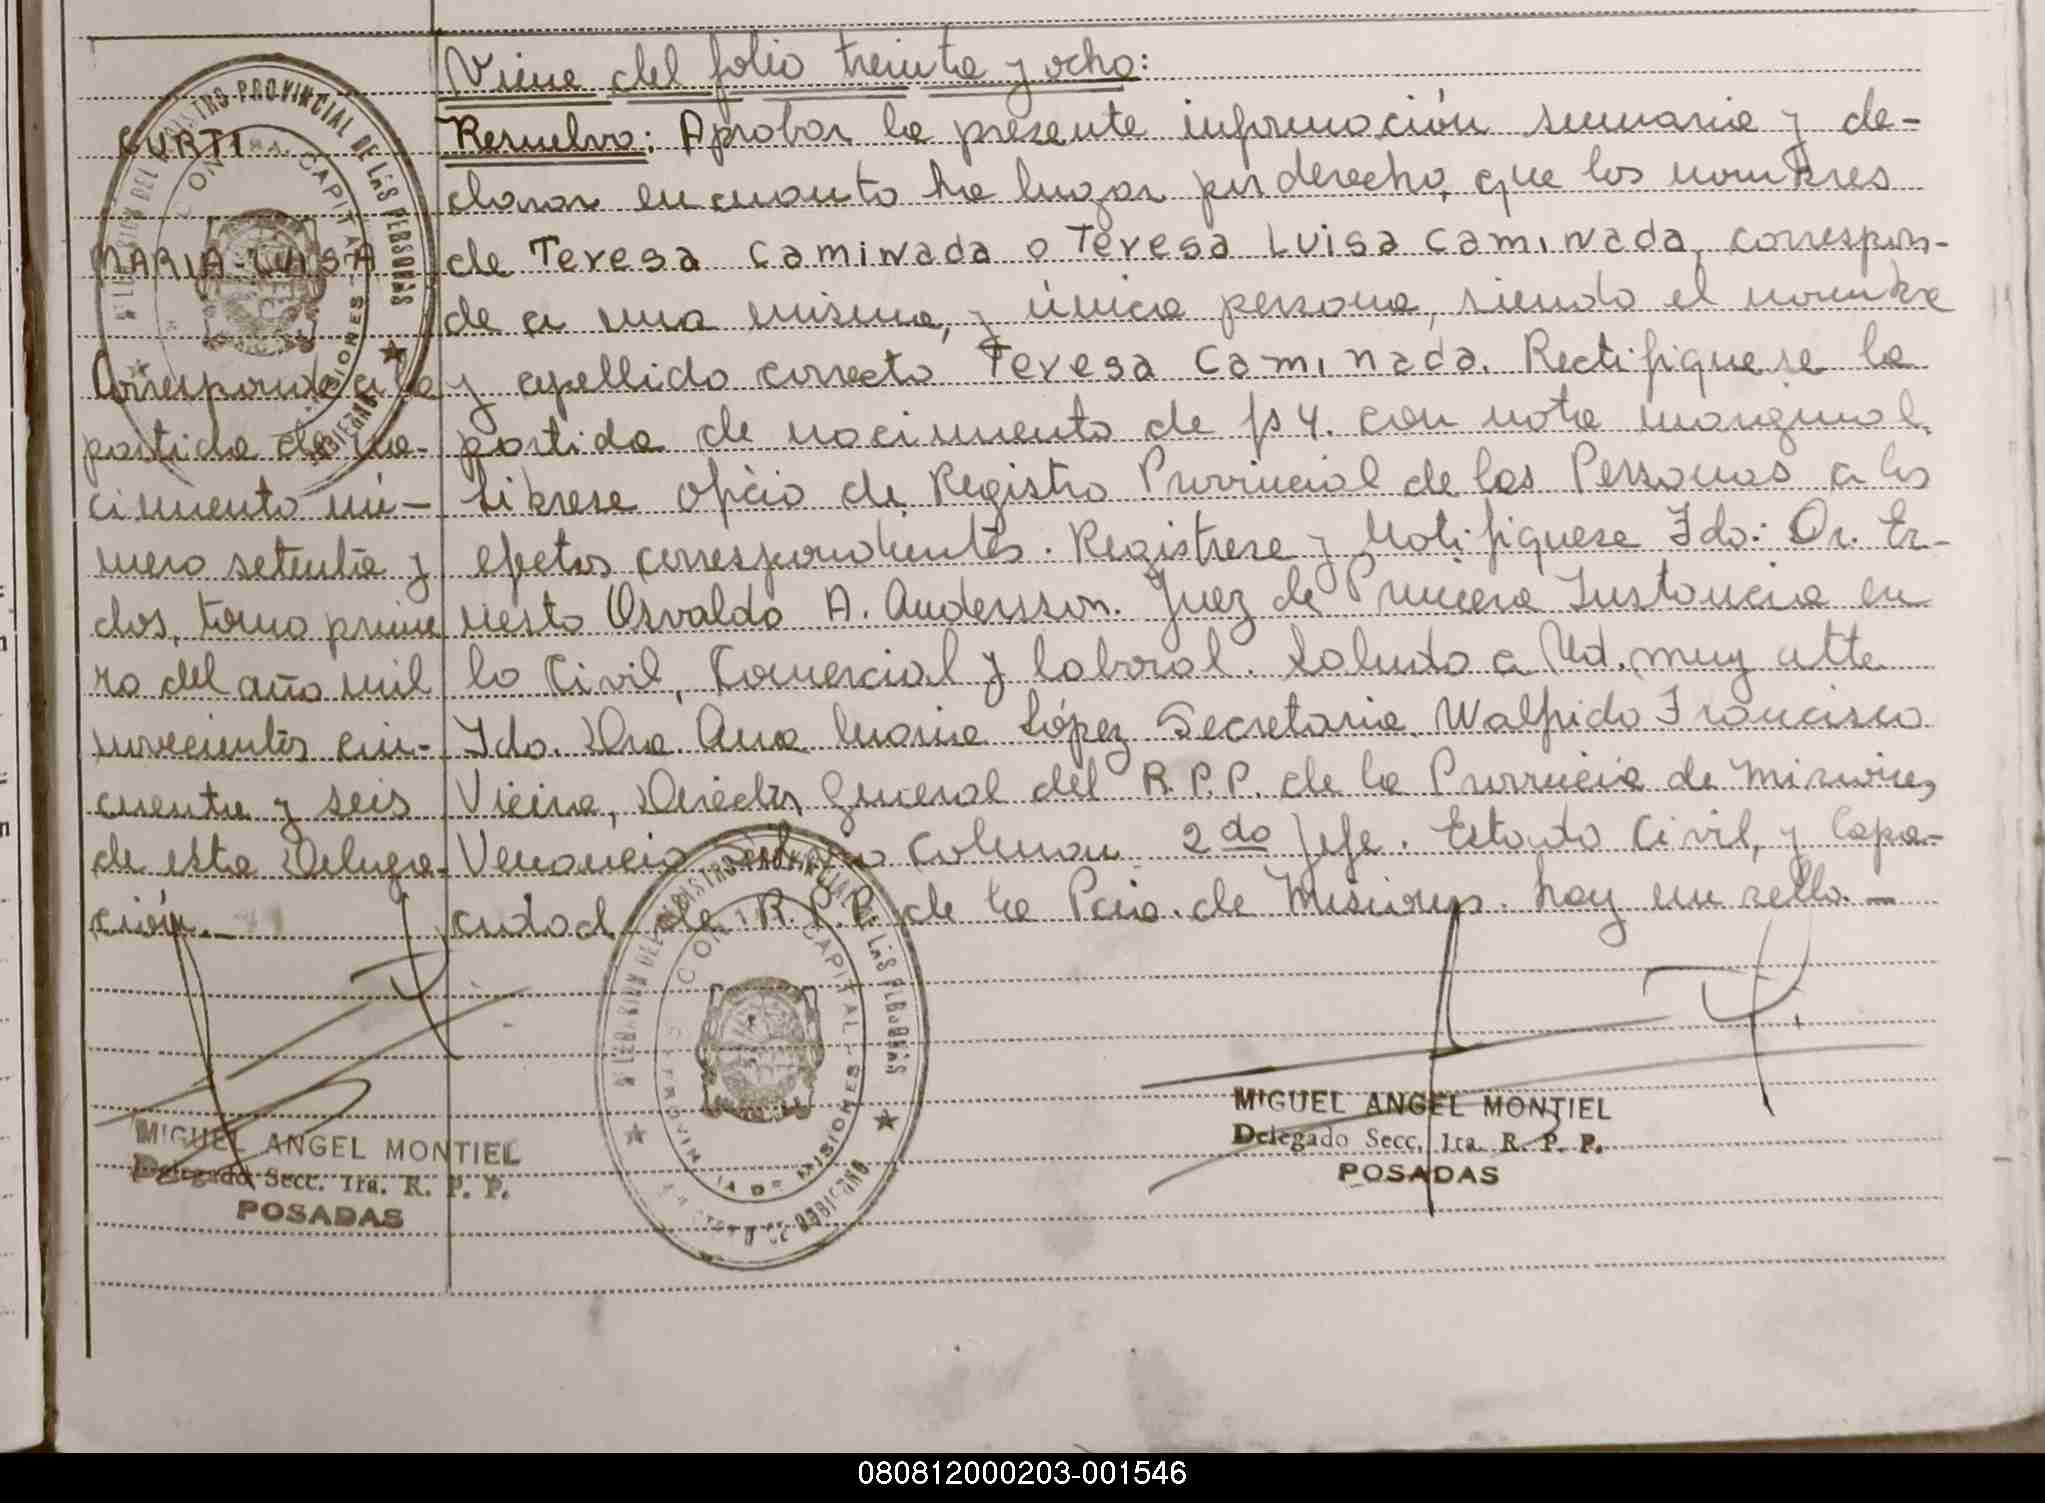 Viene del folio treinta y ocho:
CURTI
MARIA LUISA
Corresponde a la
partida de na-
cimiento nú-
mero setenta y
dos, tomo prime
ro del año mil
novecientos cin-
cuenta y seis
de esta Delega-
ción.-
Resuelvo: Aprobar la presente información sumaria y de-
clarar en cuanto ha lugar por derecho, que los nombres
de Teresa Caminada o Teresa Luisa Caminada, correspon-
de a una misma, y única persona, siendo el nombre
y apellido correcto Teresa Caminada. Rectifiquese la
partida de nacimiento de fs 4. con nota marginal.
Librese oficio de Registro Provincial de las Personas a los
efectos correspondientes. Registrese y Notifiquese Fdo: Dr. Er-
nesto Osvaldo A. Andersson. Juez de Primera Instancia en
lo Civil, Comercial y laboral. Saluda a Ud. muy atte
Fdo. Dra. Ana María López Secretaria. Walfrido Francisco
Vieira, Director General del R.P.P. de la Provincia de Misiones,
Venancio Colman 2do Jefe. Estado Civil, y Capa-
cidad de R.P.P. de la Pcia. de Misiones. hay un sello.-
REGISTRO PROVINCIAL DE LAS PERSONAS
CAPITAL
MISIONES
PROVINCIA DE MISIONES
MIGUEL ANGEL MONTIEL
Delegado Secc. 1ra. R. P. P.
POSADAS
MIGUEL ANGEL MONTIEL
Delegado Secc. 1ra. R. P. P.
POSADAS
080812000203-001546